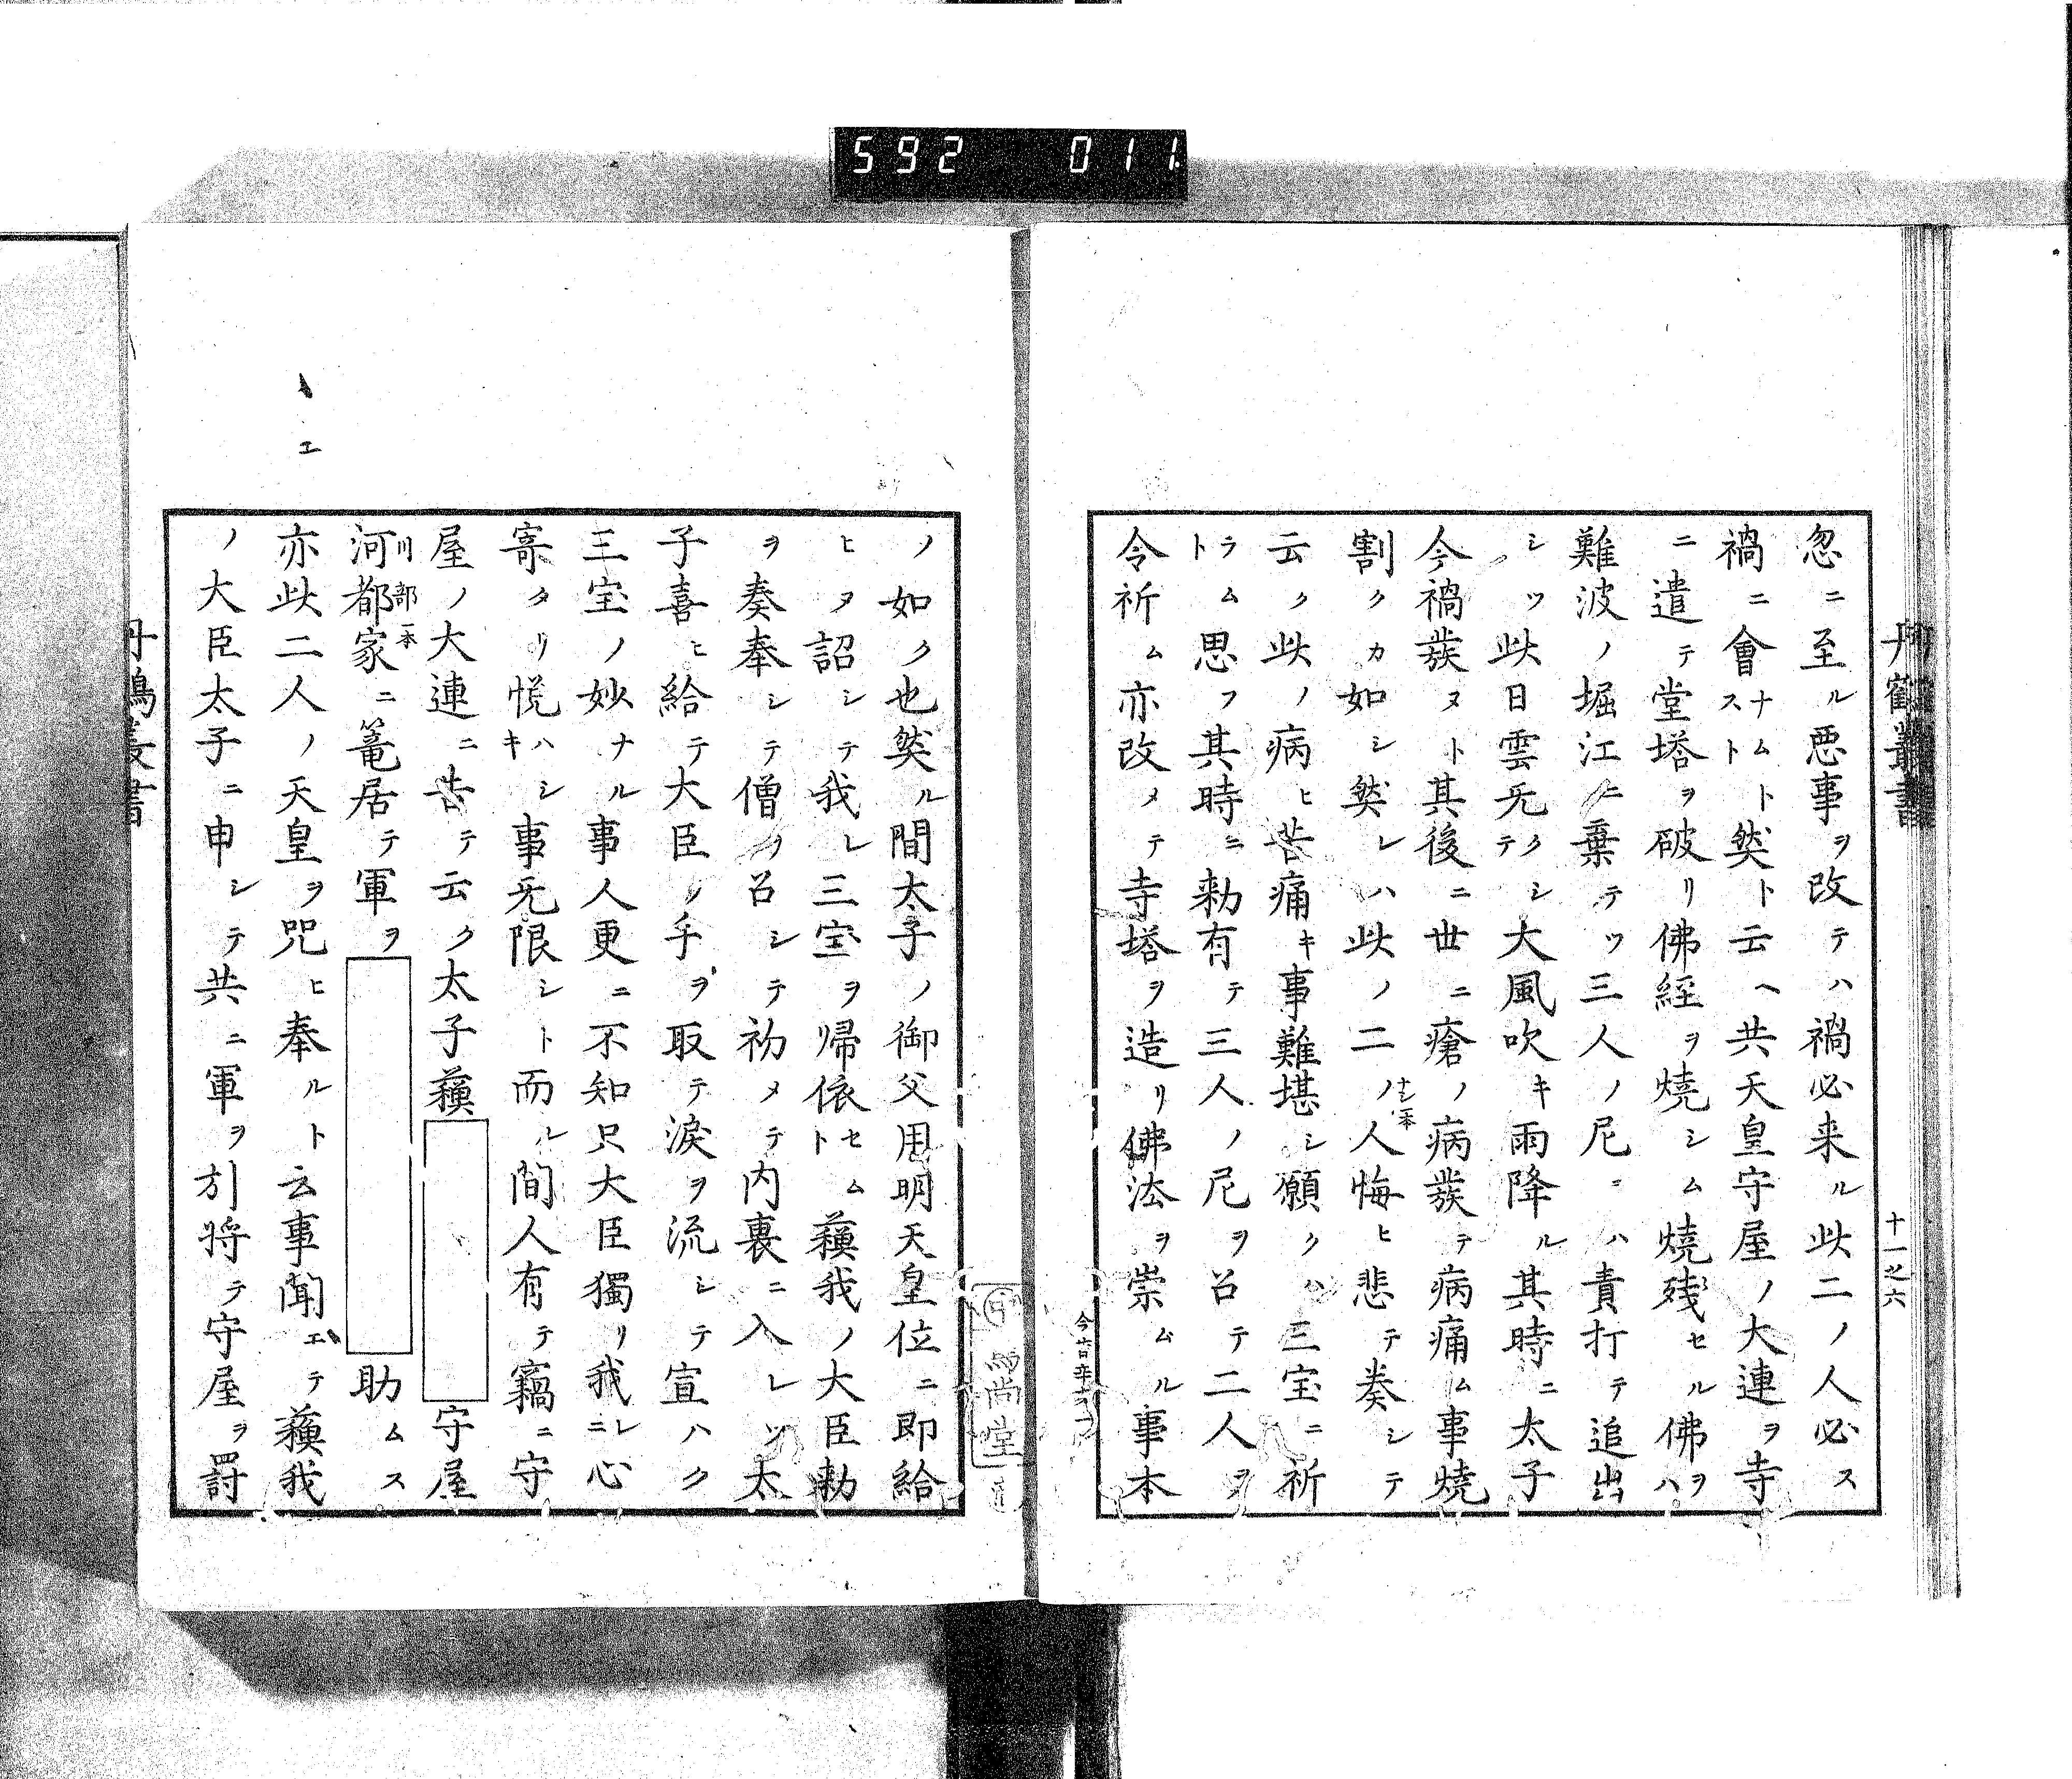 592 011.
丹鶴叢書
十一之六
忽ニ至ル惡事ヲ改テハ禍必来ル此二ノ人必ス
禍ニ會ナムトスト然ト云ヘ共天皇守屋ノ大連ヲ寺
ニ遣テ堂塔ヲ破リ佛經ヲ燒シム燒残セル佛ヲハ
難波ノ堀江ニ棄テツ三人ノ尼ヲハ責打テ追出
シツ此日雲无クシテ大風吹キ雨降ル其時ニ太子
今禍發ヌト其後ニ世ニ瘡ノ病發テ病痛ム事燒
割クカ如シ然レハ此ノ二ノ人悔ヒ悲テ奏シテ
ナシ一本
云ク此ノ病ヒ苦痛キ事難堪シ願クハ三宝ニ祈
ラムト思フ其時ニ勅有テ三人ノ尼ヲ召テ二人ヲ
令祈ム亦改メテ寺塔ヲ造リ佛法ヲ崇ムル事本
ノ如ク也然ル間太子ノ御父用明天皇位ニ即給
ヒヌ詔シテ我レ三宝ヲ帰依セムト蘓我ノ大臣勅
ヲ奏奉シテ僧ヲ召シテ初メテ内裏ニ入レツ太
子喜ヒ給テ大臣ノ手ヲ取テ淚ヲ流シテ宣ハク
三宝ノ妙ナル事人更ニ不知只大臣獨リ我レニ心
寄タリ悦ハシキ事无限シト而ル間人有テ竊ニ守
屋ノ大連ニ告テ云ク太子蘓 守屋
河都家ニ篭居テ軍ヲ 助ムス
川部一本
亦此二人ノ天皇ヲ咒ヒ奉ルト云事聞エテ蘓我
ノ大臣太子ニ申シテ共ニ軍ヲ引将テ守屋ヲ罸
エ